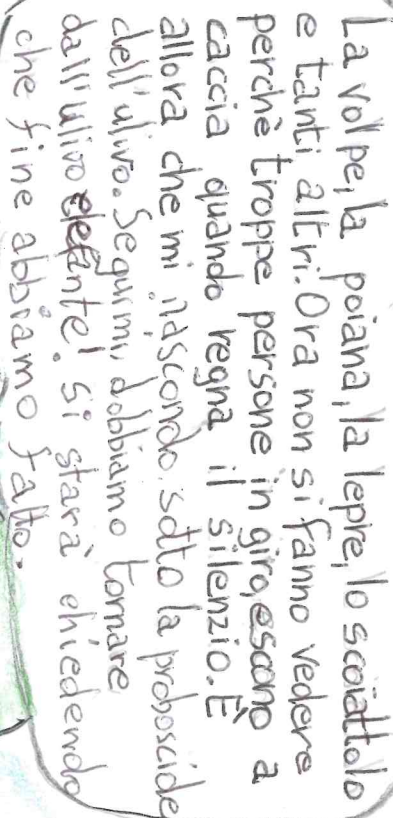 La volpe, la poiana, la lepre, lo scoiattolo
e tanti altri. Ora non si fanno vedere
perchè troppe persone in giro, escono a
caccia quando regna il silenzio. È
allora che mi nascondo sotto la proboscide
dell'ulivo. Seguimi, dobbiamo tornare
dall'ulivo elefante! Si starà chiedendo
che fine abbiamo fatto.